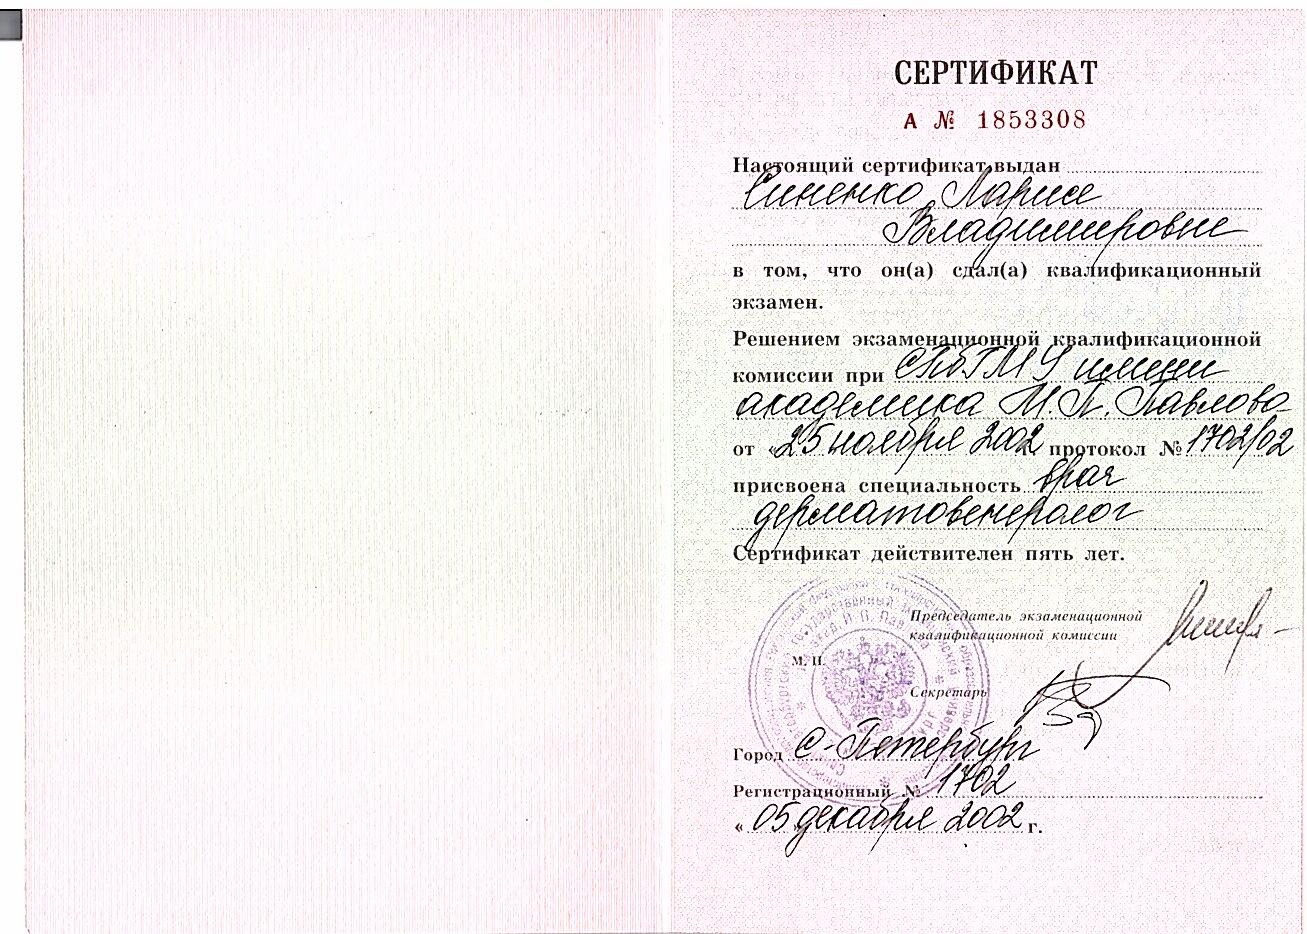 СЕРТИФИКАТ
А № 1853308
Настоящий сертификат выдан
Синенко Ларисе
Владимировне
в том, что он(а) сдал(а) квалификационный
экзамен.
Решением экзаменационной квалификационной
комиссии при СПбГМУ имени
академика И.П. Павлова
от «25 ноября 2002 протокол № 1702/02
присвоена специальность врач
дерматовенеролог
Сертификат действителен пять лет.
Председатель экзаменационной
квалификационной комиссии
М. П.
Секретарь
Город С-Петербург
Регистрационный № 1702
« 05 декабря 2002 г.